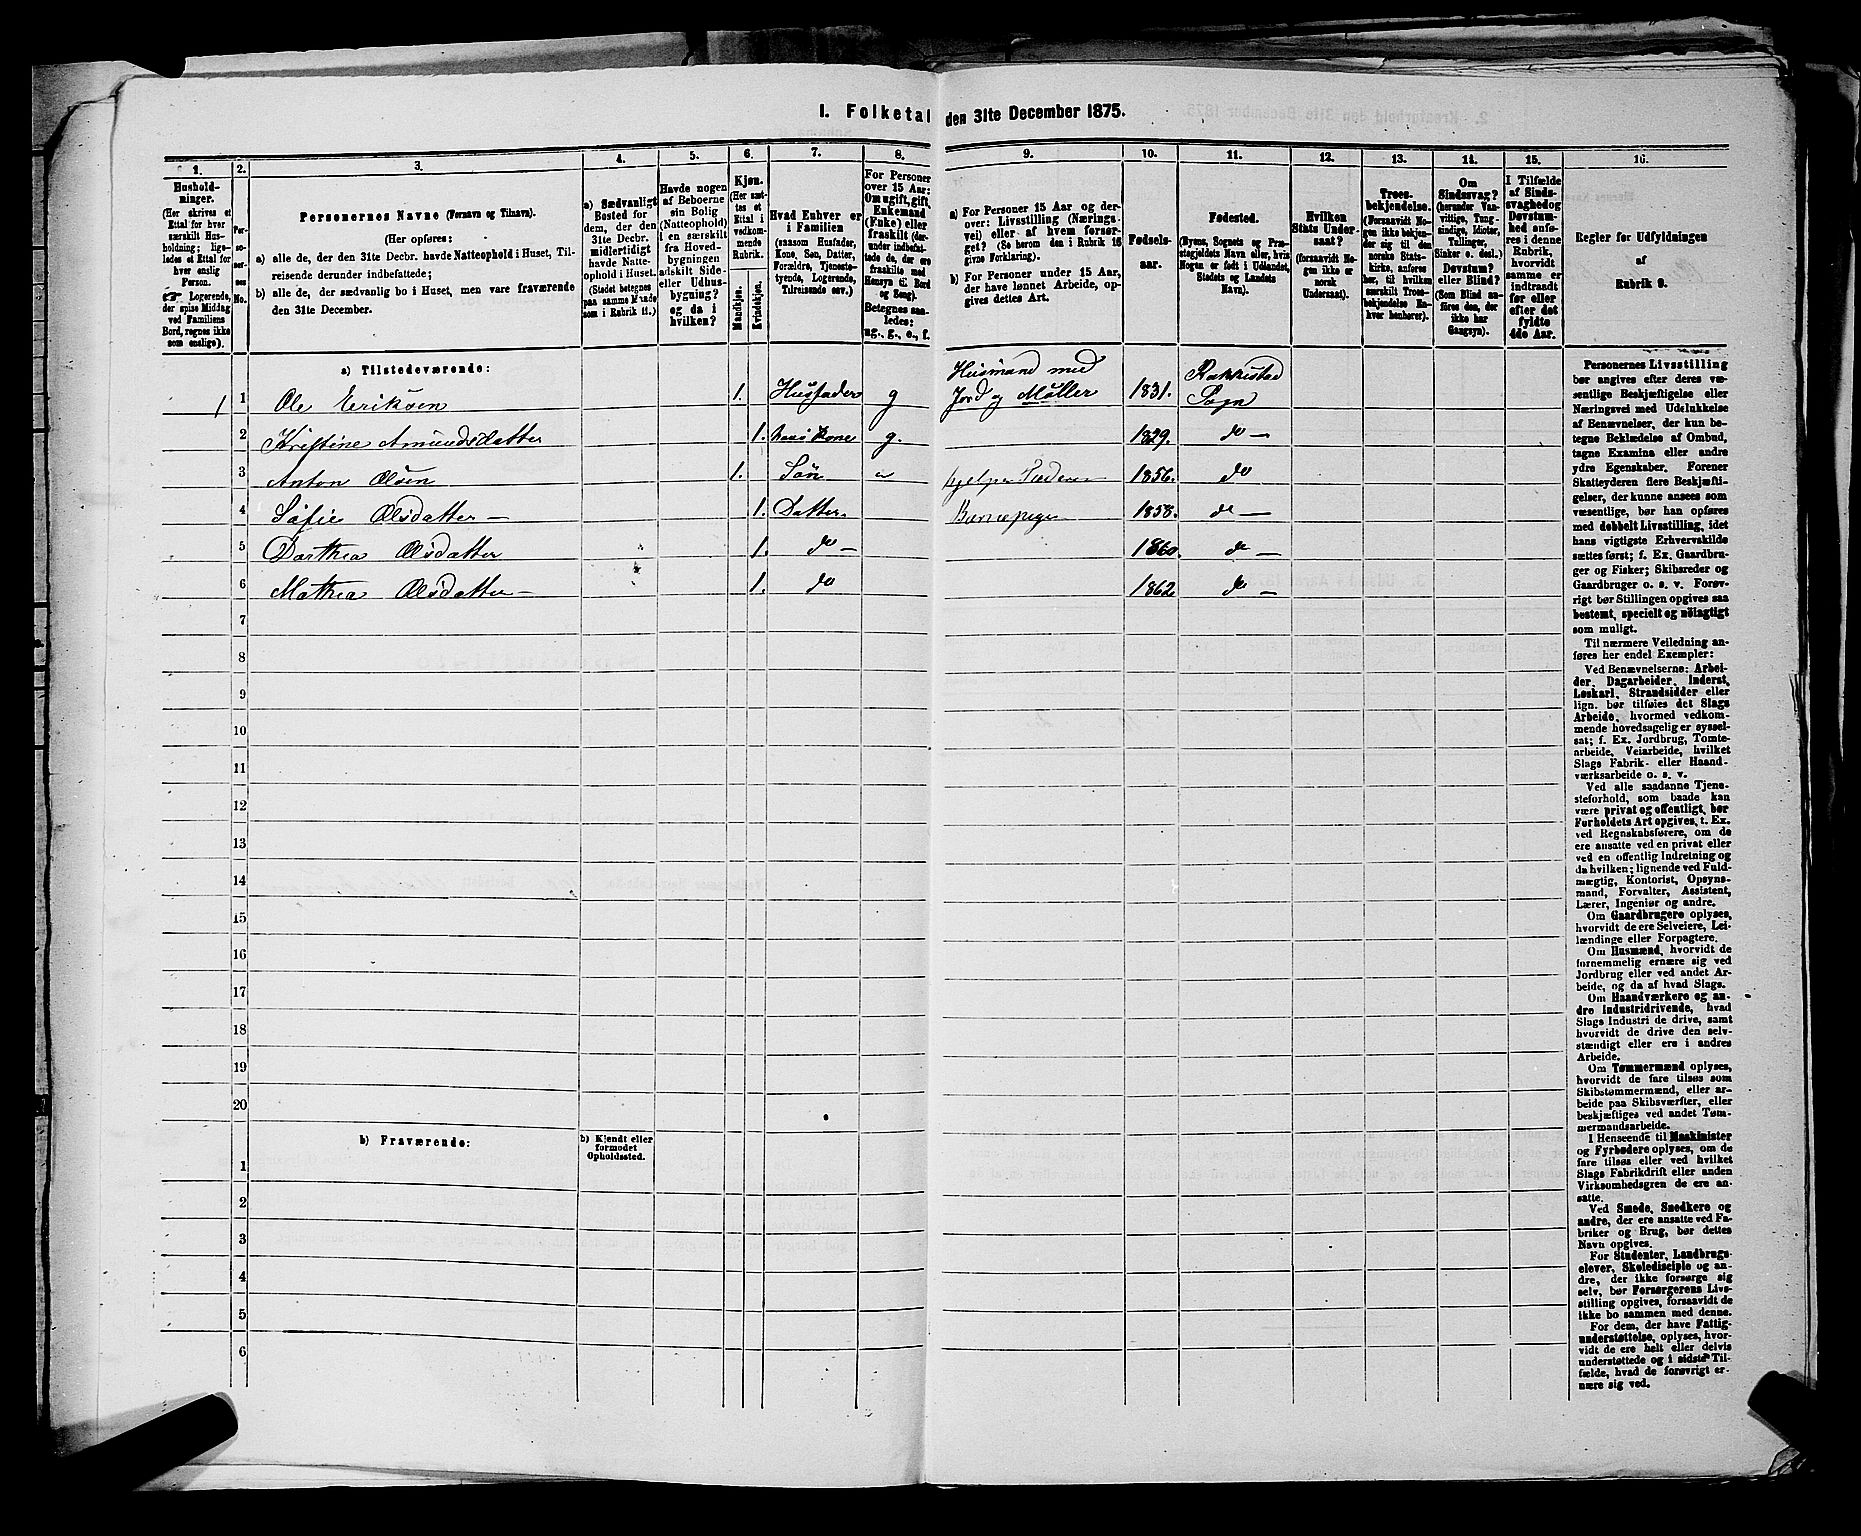 1. Folketal den 31te December 1875.
1. 2. 3. 4. 5. 6. 7. 8. 9. 10. 11. 12. 13. 14. 15. 16.
Hushold-
ninger.
(Her skrives et
Ettal for hver
særskilt Hus-
holdning; lige-
ledes et Ettal for
hver enslig
Person.
Logerende,
der spise Middag
ved Familiens
Bord, regnes ikke
som enslige).
Per-
so-
ner-
nes
No.
Personernes Navne (Fornavn og Tilnavn).
(Her opføres:
a) alle de, der den 31te Decbr. havde Natteophold i Huset, Til-
reisende derunder indbefattede;
b) alle de, der sædvanlig bo i Huset, men vare fraværende
den 31te December.
a) Sædvanligt
Bosted for
dem, der den
31te Decbr.
midlertidigt
havde Natte-
ophold i Huset.
(Stedet betegnes
paa samme Maade
som i Rubrik 11.)
Havde nogen
af Beboerne
sin Bolig
(Natteophold)
i en særskilt
fra Hoved-
bygningen
adskilt Side-
eller Udhus-
bygning?
og da i
hvilken?
Kjøn.
(Her sæt-
tes et
Ettal i
vedkom-
mende
Rubrik.
Mandkjøn.
Kvindekjøn.
Hvad Enhver er
i Familien
(saasom Husfader,
Kone, Søn, Datter,
Forældre, Tjeneste-
tyende, Logerende,
Tilreisende osv.)
For Personer
over 15 Aar:
Om ugift, gift,
Enkemand
(Enke) eller
fraskilt (der-
under indbefat-
tede de, der ere
fraskilte med
Hensyn til Bord
og Seng).
Betegnes saa-
ledes:
ug., g., e., f.
a) For Personer 15 Aar og der-
over: Livsstilling (Nærings-
vei) eller af hvem forsør-
get? (Se herom den i Rubrik 16
givne Forklaring).
b) For Personer under 15 Aar,
der have lønnet Arbeide, op-
gives dettes Art.
Fødsels-
aar.
Fødested.
(Byens, Sognets og Præ-
stegjeldets Navn eller, hvis
Nogen er født i Udlandet,
Stedets og Landets
Navn).
Hvilken
Stats Under-
saat?
(forsaavidt No-
gen ikke er
norsk
Undersaat).
Troes-
bekjendelse.
(Forsaavidt No-
gen ikke bekjen-
der sig til den
norske Stats-
kirke, anføres
her, til hvilken
særskilt Troes-
bekjendelse En-
hver henhører).
Om
Sindssvag?
(herunder Van-
vittige, Tung-
sindige, Idioter,
Tullinger,
Sinker o. desl.)
Døvstum?
eller Blind?
(Som Blind an-
føres den, der
ikke har
Gangsyn).
I Tilfælde
af Sinds-
svaghed og
Døvstum-
hed anfø-
res i denne
Rubrik,
hvorvidt
samme er
indtraadt
før eller
efter det
fyldte
4de Aar.
Regler for Udfyldningen
af
Rubrik 9.
a) Tilstedeværende:
1 1 Ole Eriksen 1. Husfader g Husmand med Jord og Møller 1831. Rakkestad Sogn
2 Kristine Amundsdatter 1. hans Kone g. 1829. do —
3 Anton Olsen 1. Søn u hjelper Faderen 1856. do
4 Sofie Olsdatter — 1. Datter. Barnepige 1858. do —
5 Dorthea Olsdatter 1. do — 1860. do —
6 Mathea Olsdatter — 1. do 1862. do —
7
8
9
10
11
12
13
14
15
16
17
18
19
20
b) Fraværende:
b) Kjendt eller
formodet
Opholdssted.
1
2
3
4
5
6
Personernes Livsstilling
bør angives efter deres væ-
sentlige Beskjæftigelse eller
Næringsvei med Udelukkelse
af Benævnelser, der kun be-
tegne Beklædelse af Ombud,
tagne Examina eller andre
ydre Egenskaber. Forener
Skatteyderen flere Beskjæfti-
gelser, der kunne ansees som
væsentlige, bør han opføres
med dobbelt Livsstilling, idet
hans vigtigste Erhvervskilde
sættes først; f. Ex. Gaardbru-
ger og Fisker; Skibsreder og
Gaardbruger o. s. v. Forøv-
rigt bør Stillingen opgives saa
bestemt, specielt og nøiagtigt
som muligt.
Til nærmere Veiledning an-
føres her endel Exempler:
Ved Benævnelserne: Arbei-
der, Dagarbeider, Inderst,
Løskarl, Strandsidder eller
lign. bør tilføies det Slags
Arbeide, hvormed vedkom-
mende hovedsagelig er syssel-
sat; f. Ex. Jordbrug, Tomte-
arbeide, Veiarbeide, hvilket
Slags Fabrik- eller Haand-
værksarbeide o. s. v.
Ved alle saadanne Tjene-
steforhold, som baade kan
være privat og offentligt, bør
Forholdets Art opgives, t. Ex.
ved Regnskabsførere, om de
ere ansatte ved en privat eller
ved en offentlig Indretning og
da hvilken; lignende ved Fuld-
mægtig, Kontorist, Opsyns-
mand, Forvalter, Assistent,
Lærer, Ingeniør og andre.
Om Gaardbrugere oplyses,
hvorvidt de ere Selveiere, Lei-
lændinge eller Forpagtere.
Om Husmænd, hvorvidt de
fornemmelig ernære sig ved
Jordbrug eller ved andet Ar-
beide, og da af hvad Slags.
Om Haandværkere og an-
dre Industridrivende, hvad
Slags Industri de drive, samt
hvorvidt de drive den selv-
stændigt eller ere i andres
Arbeide.
Om Tømmermænd oplyses,
hvorvidt de fare tilsøs som
Skibstømmermænd, eller ar-
beide paa Skibsværfter, eller
beskjæftiges ved andet Tøm-
mermandsarbeide.
I Henseende til Maskinister
og Fyrbødere oplyses, om de
fare tilsøs eller ved hvilket
Slags Fabrikdrift eller anden
Virksomhedsgren de ere an-
satte.
Ved Smede, Snedkere og
andre, der ere ansatte ved Fa-
briker og Brug, bør dettes
Navn opgives.
For Studenter, Landbrugs-
elever, Skoledisciple og an-
dre, der ikke forsørge sig
selv, bør Forsørgerens Livs-
stilling opgives, forsaavidt de
ikke bo sammen med denne.
For dem, der have Fattig-
understøttelse, oplyses, hvor-
vidt de ere helt eller delvis
understøttede og i sidste Til-
fælde, hvad de forøvrigt er-
nære sig ved.